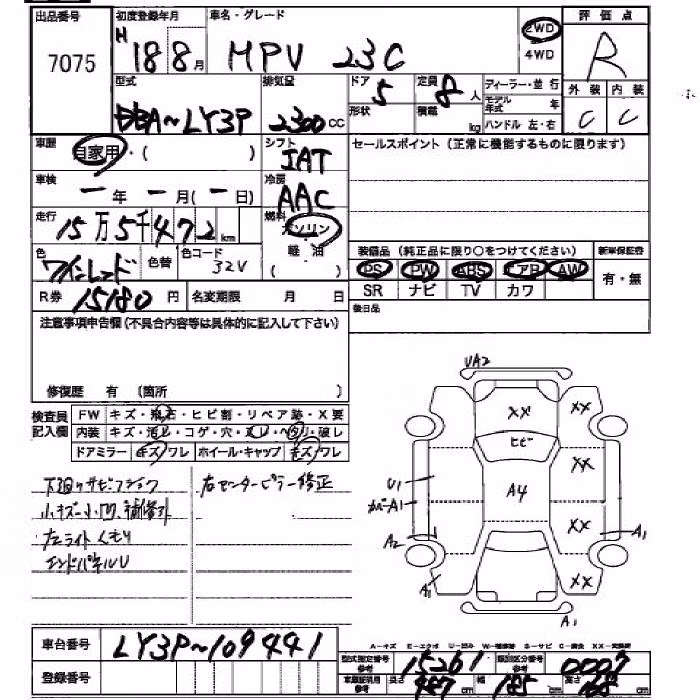 出品番号 初度登録年月 車名・グレード 2WD 評価点
7075 H 18 8月 MPV 23C 4WD R
型式 排気量 ドア 定員 ディーラー・並 行 外装 内装
DBA~LY3P 2300cc 5 8人 モデル年式 年 C C
形状 積載 kg ハンドル 左・右
車歴 自家用・( ) シフト IAT セールスポイント(正常に機能するものに限ります)
車検 ー年ー月(ー日) 冷房 AAC
走行 15万5千472km 燃料 ガソリン
軽・油
( )
色 ワインレッド 色替 色コード 32V 装備品(純正品に限り○をつけてください) 新車保証書
PS PW ABS エアB AW 有・無
R券 15180円 名変期限 月 日 SR ナビ TV カワ
注意事項申告欄(不具合内容等は具体的に記入して下さい) 後日品
修復歴 有 (箇所 )
検査員記入欄 FW キズ・飛石・ヒビ割・リペア跡・X要
内装 キズ・汚レ・コゲ・穴・ヌレ・ヘタリ・破レ
ドアミラー キズ/ワレ ホイール・キャップ キズ/ワレ
下廻りサビ 右センターピラー修正
小キズ 小凹 補修跡
左ライトくもり
エンドパネルU
UA2
XX XX
ヒビ XX
U1 A4
カバーA1
A2 XX A1
A1 XX
A1
車台番号 LY3P~109441
A-キズ E-エクボ U-凹み W-補修跡 S-サビ C-腐食 XX-交換済
登録番号 型式指定番号 参考 15261 類別区分番号 参考 0007
車庫証明用 参考 長さ 487cm 幅 185cm 高さ 168cm